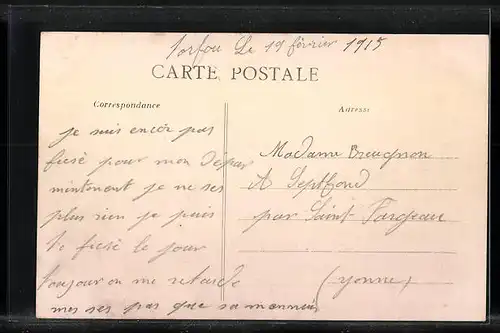 Torfou Le 19 février 1915
CARTE POSTALE
Correspondance
Adresse
je suis encor pas
ficsé pour mon dépar
mintonant je ne ses
plus rien je puis
te ficsé le jour
toujour on me retarde
mes ses pas que sa mannui
Madame Breugnon
A Septfond
par Saint-Fargeau
(yonne)